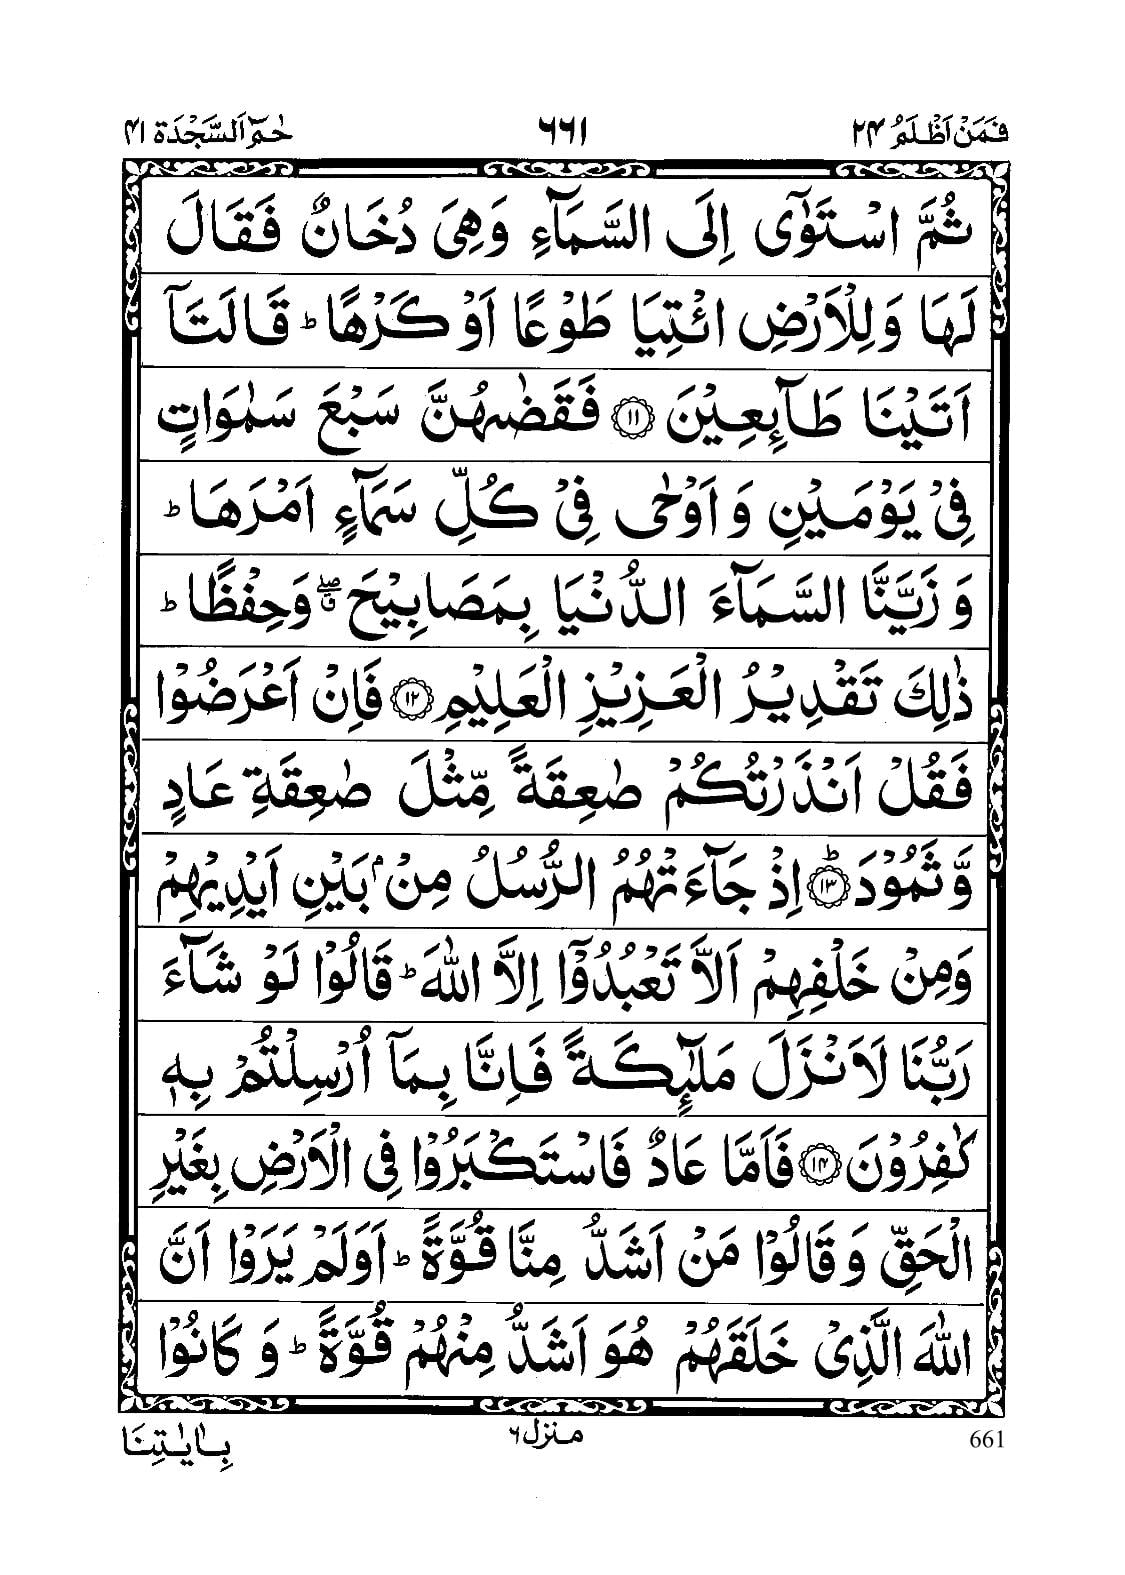 فَمَنْ اَظْلَمُ ۲۴ ۶۶۱ حٰمٓ اَلسَّجْدَة ۴۱
ثُمَّ اسْتَوٰٓى اِلَى السَّمَآءِ وَهِىَ دُخَانٌ فَقَالَ
لَهَا وَلِلْاَرْضِ ائْتِيَا طَوْعًا اَوْ كَرْهًا ؕ قَالَتَآ
اَتَيْنَا طَآٮِٕعِيْنَ ﴿۱۱﴾ فَقَضٰهُنَّ سَبْعَ سَمٰوَاتٍ
فِىْ يَوْمَيْنِ وَ اَوْحٰى فِىْ كُلِّ سَمَآءٍ اَمْرَهَا ؕ
وَ زَيَّنَّا السَّمَآءَ الدُّنْيَا بِمَصَابِيْحَ ۖۗ وَحِفْظًا ؕ
ذٰلِكَ تَقْدِيْرُ الْعَزِيْزِ الْعَلِيْمِ ﴿۱۲﴾ فَاِنْ اَعْرَضُوْا
فَقُلْ اَنْذَرْتُكُمْ صٰعِقَةً مِّثْلَ صٰعِقَةِ عَادٍ
وَّثَمُوْدَ ؕ ﴿۱۳﴾ اِذْ جَآءَتْهُمُ الرُّسُلُ مِنْۢ بَيْنِ اَيْدِيْهِمْ
وَمِنْ خَلْفِهِمْ اَلَّا تَعْبُدُوْۤا اِلَّا اللّٰهَ ؕ قَالُوْا لَوْ شَآءَ
رَبُّنَا لَاَنْزَلَ مَلٰٓٮِٕكَةً فَاِنَّا بِمَآ اُرْسِلْتُمْ بِهٖ
كٰفِرُوْنَ ﴿۱۴﴾ فَاَمَّا عَادٌ فَاسْتَكْبَرُوْا فِى الْاَرْضِ بِغَيْرِ
الْحَقِّ وَ قَالُوْا مَنْ اَشَدُّ مِنَّا قُوَّةً ؕ اَوَلَمْ يَرَوْا اَنَّ
اللّٰهَ الَّذِىْ خَلَقَهُمْ هُوَ اَشَدُّ مِنْهُمْ قُوَّةً ؕ وَ كَانُوْا
661 منزل ۶ بِاٰيٰتِنَا